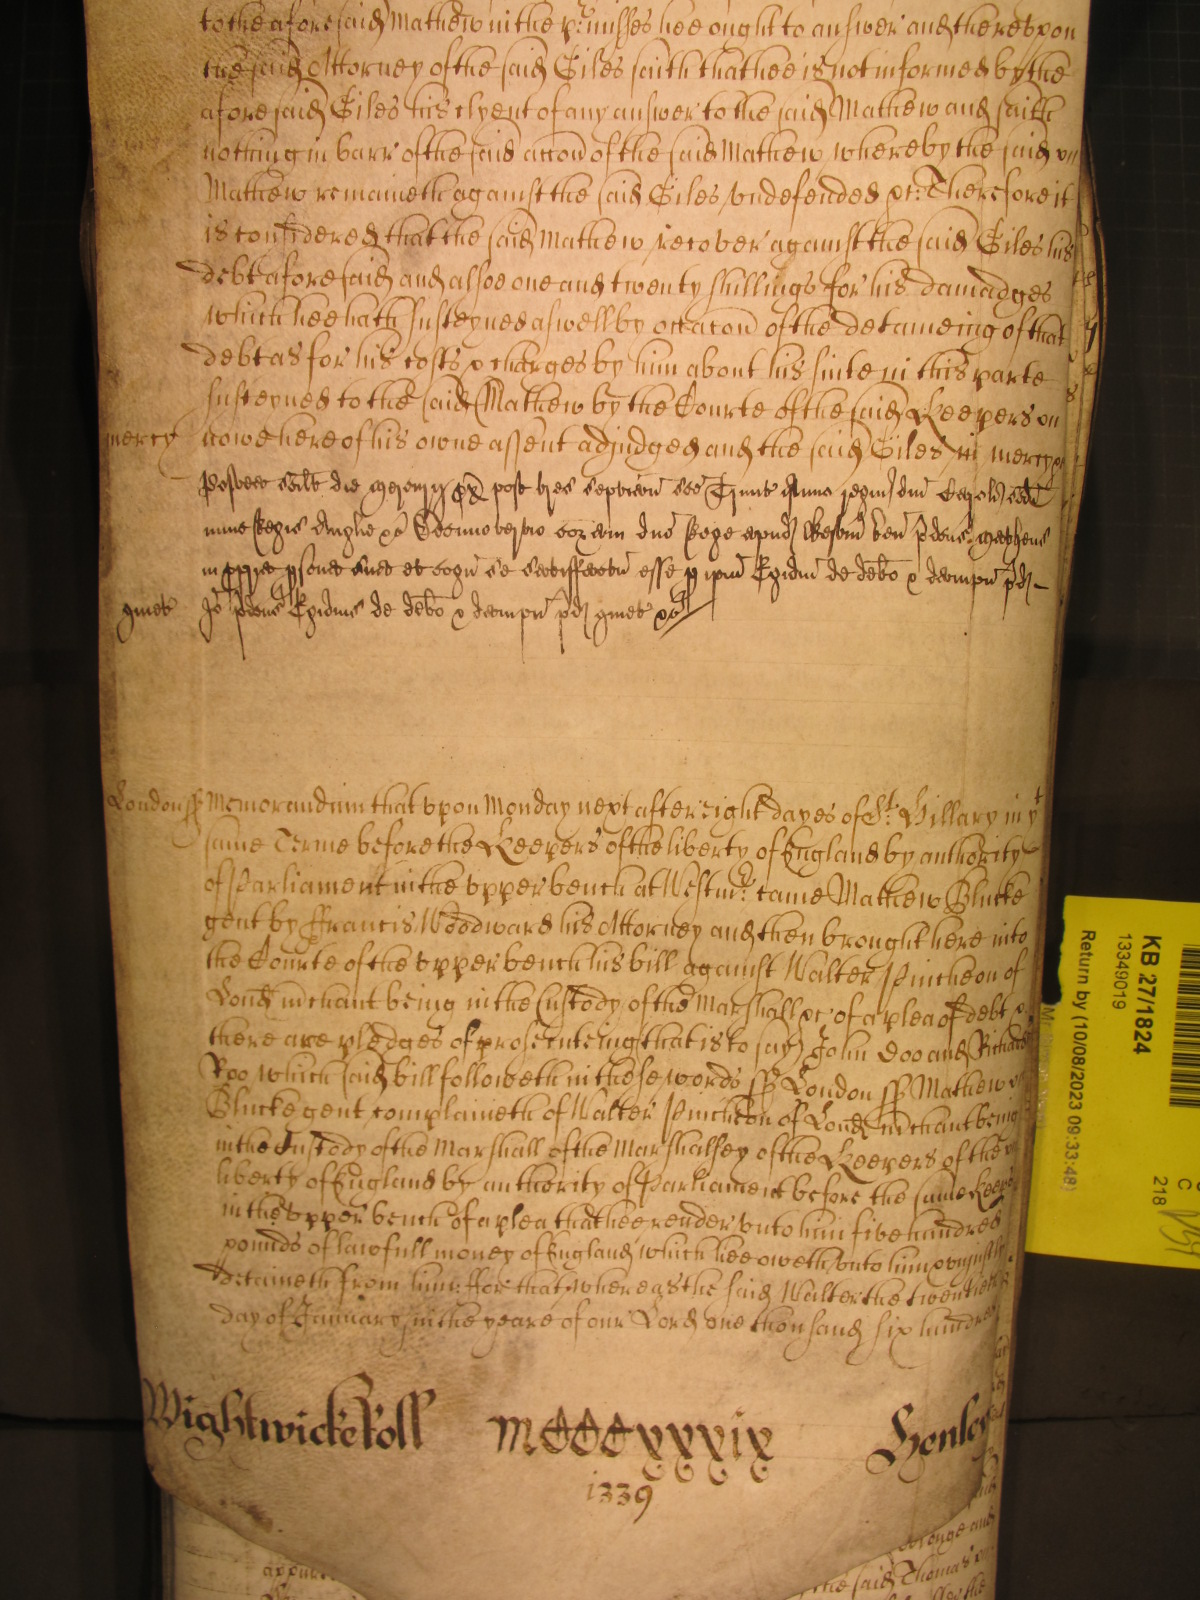 to the aforesaid Mathew in the p'misses hee ought to answer and therevpon
the said Attorney of the said Giles saith that hee is not informed by the
aforesaid Giles his clyent of any answer to the said Mathew and saith
nothing in barr of the said accon of the said Mathew whereby the said
Mathew remaineth against the said Giles vndefended &c: Therefore it
is considered that the said Mathew recover against the said Giles his
debt aforesaid and alsoe one and twenty shillings for his damadges
which hee hath susteyned aswell by occacon of the detaineing of that
debt as for his costs & charges by him about his suite in this parte
susteyned to the said Mathew by the Courte of the said Keepers
mercy nowe here of his owne assent adjudged and the said Giles in mercy &c
Postea scilt die post tres septian Sce Trinit Anno regni dni Caroli scdi
nunc Regis Anglie &c coram dno Rege apud Westm ven
in p'pria p'sona sua et cogn se satisffactu esse p ipm Egidiu de debo & dampn pd
Io Egidius de debo & dampn pd &c
London ss Memorandum that vpon Monday next after eight dayes of St. Hillary in yt
same Terme before the Keepers of the liberty of England by authority
of Parliament in the vpper bench at Westmr: came Mathew Blucke
gent by Ffrancis Woodward his Attorney and then brought here into
the Courte of the vpper bench his bill against Walter Pincheon of
Lond m'chant being in the Custody of the Marshall &c of a plea of debt &
there are pledges of prosecuteing that is to say John Doo and Richard
Roo which said bill followeth in these words ss London ss Mathew
Blucke gent complaineth of Walter Pincheon of Lond m'chant being
in the Custody of the Marshall of the Marshalsey of the Keepers of the
liberty of England by authority of Parliament before the same Keepers
in the vpper bench of a plea that hee render vnto him five hundred
pounds of lawfull money of England which hee oweth vnto him & vnjustly
detaineth from him: ffor that whereas the said Walter the twentieth
day of January in the yeare of our Lord one thousand six hundred
Wightwicke Roll MCCCxxxix Henley
1339
KB 27/1824
13349019
Return by (10/08/2023 09:33:48)
C
218
the said Thomas